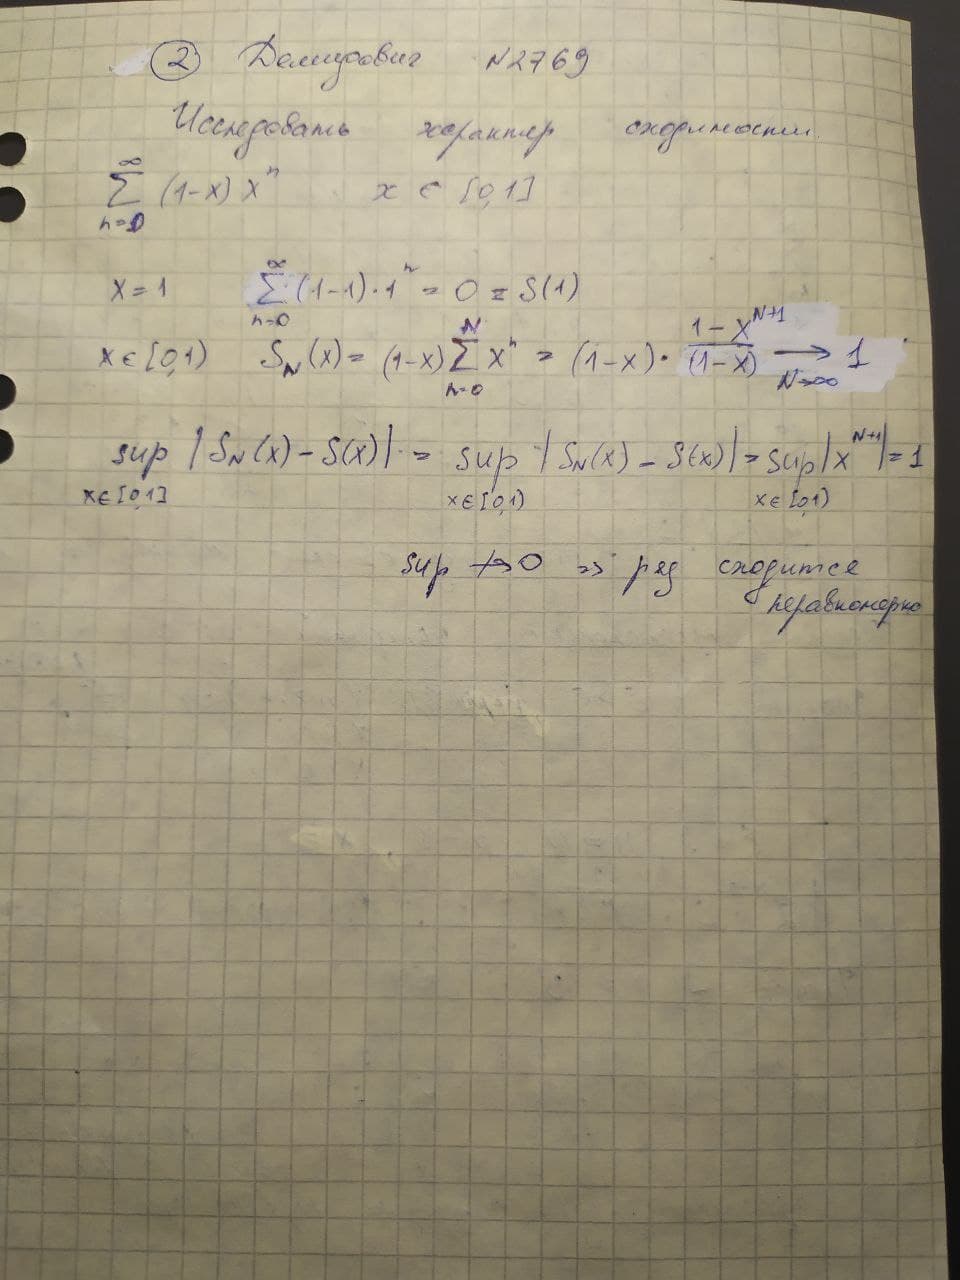 ② Демидович №2769
Исследовать характер сходимости.
∞∑n=0 (1-x) xⁿ x ∈ [0,1]
x=1 ∞∑n=0 (1-1)·1ⁿ = 0 = S(1)
x∈[0,1) S_N(x) = (1-x) N∑n=0 xⁿ = (1-x)· (1-x^{N+1})/(1-x) →_{N→∞} 1
sup_{x∈[0,1]} |S_N(x) - S(x)| = sup_{x∈[0,1)} |S_N(x) - S(x)| = sup_{x∈[0,1)} |x^{N+1}| = 1
sup ↛ 0 => ряд сходится
неравномерно